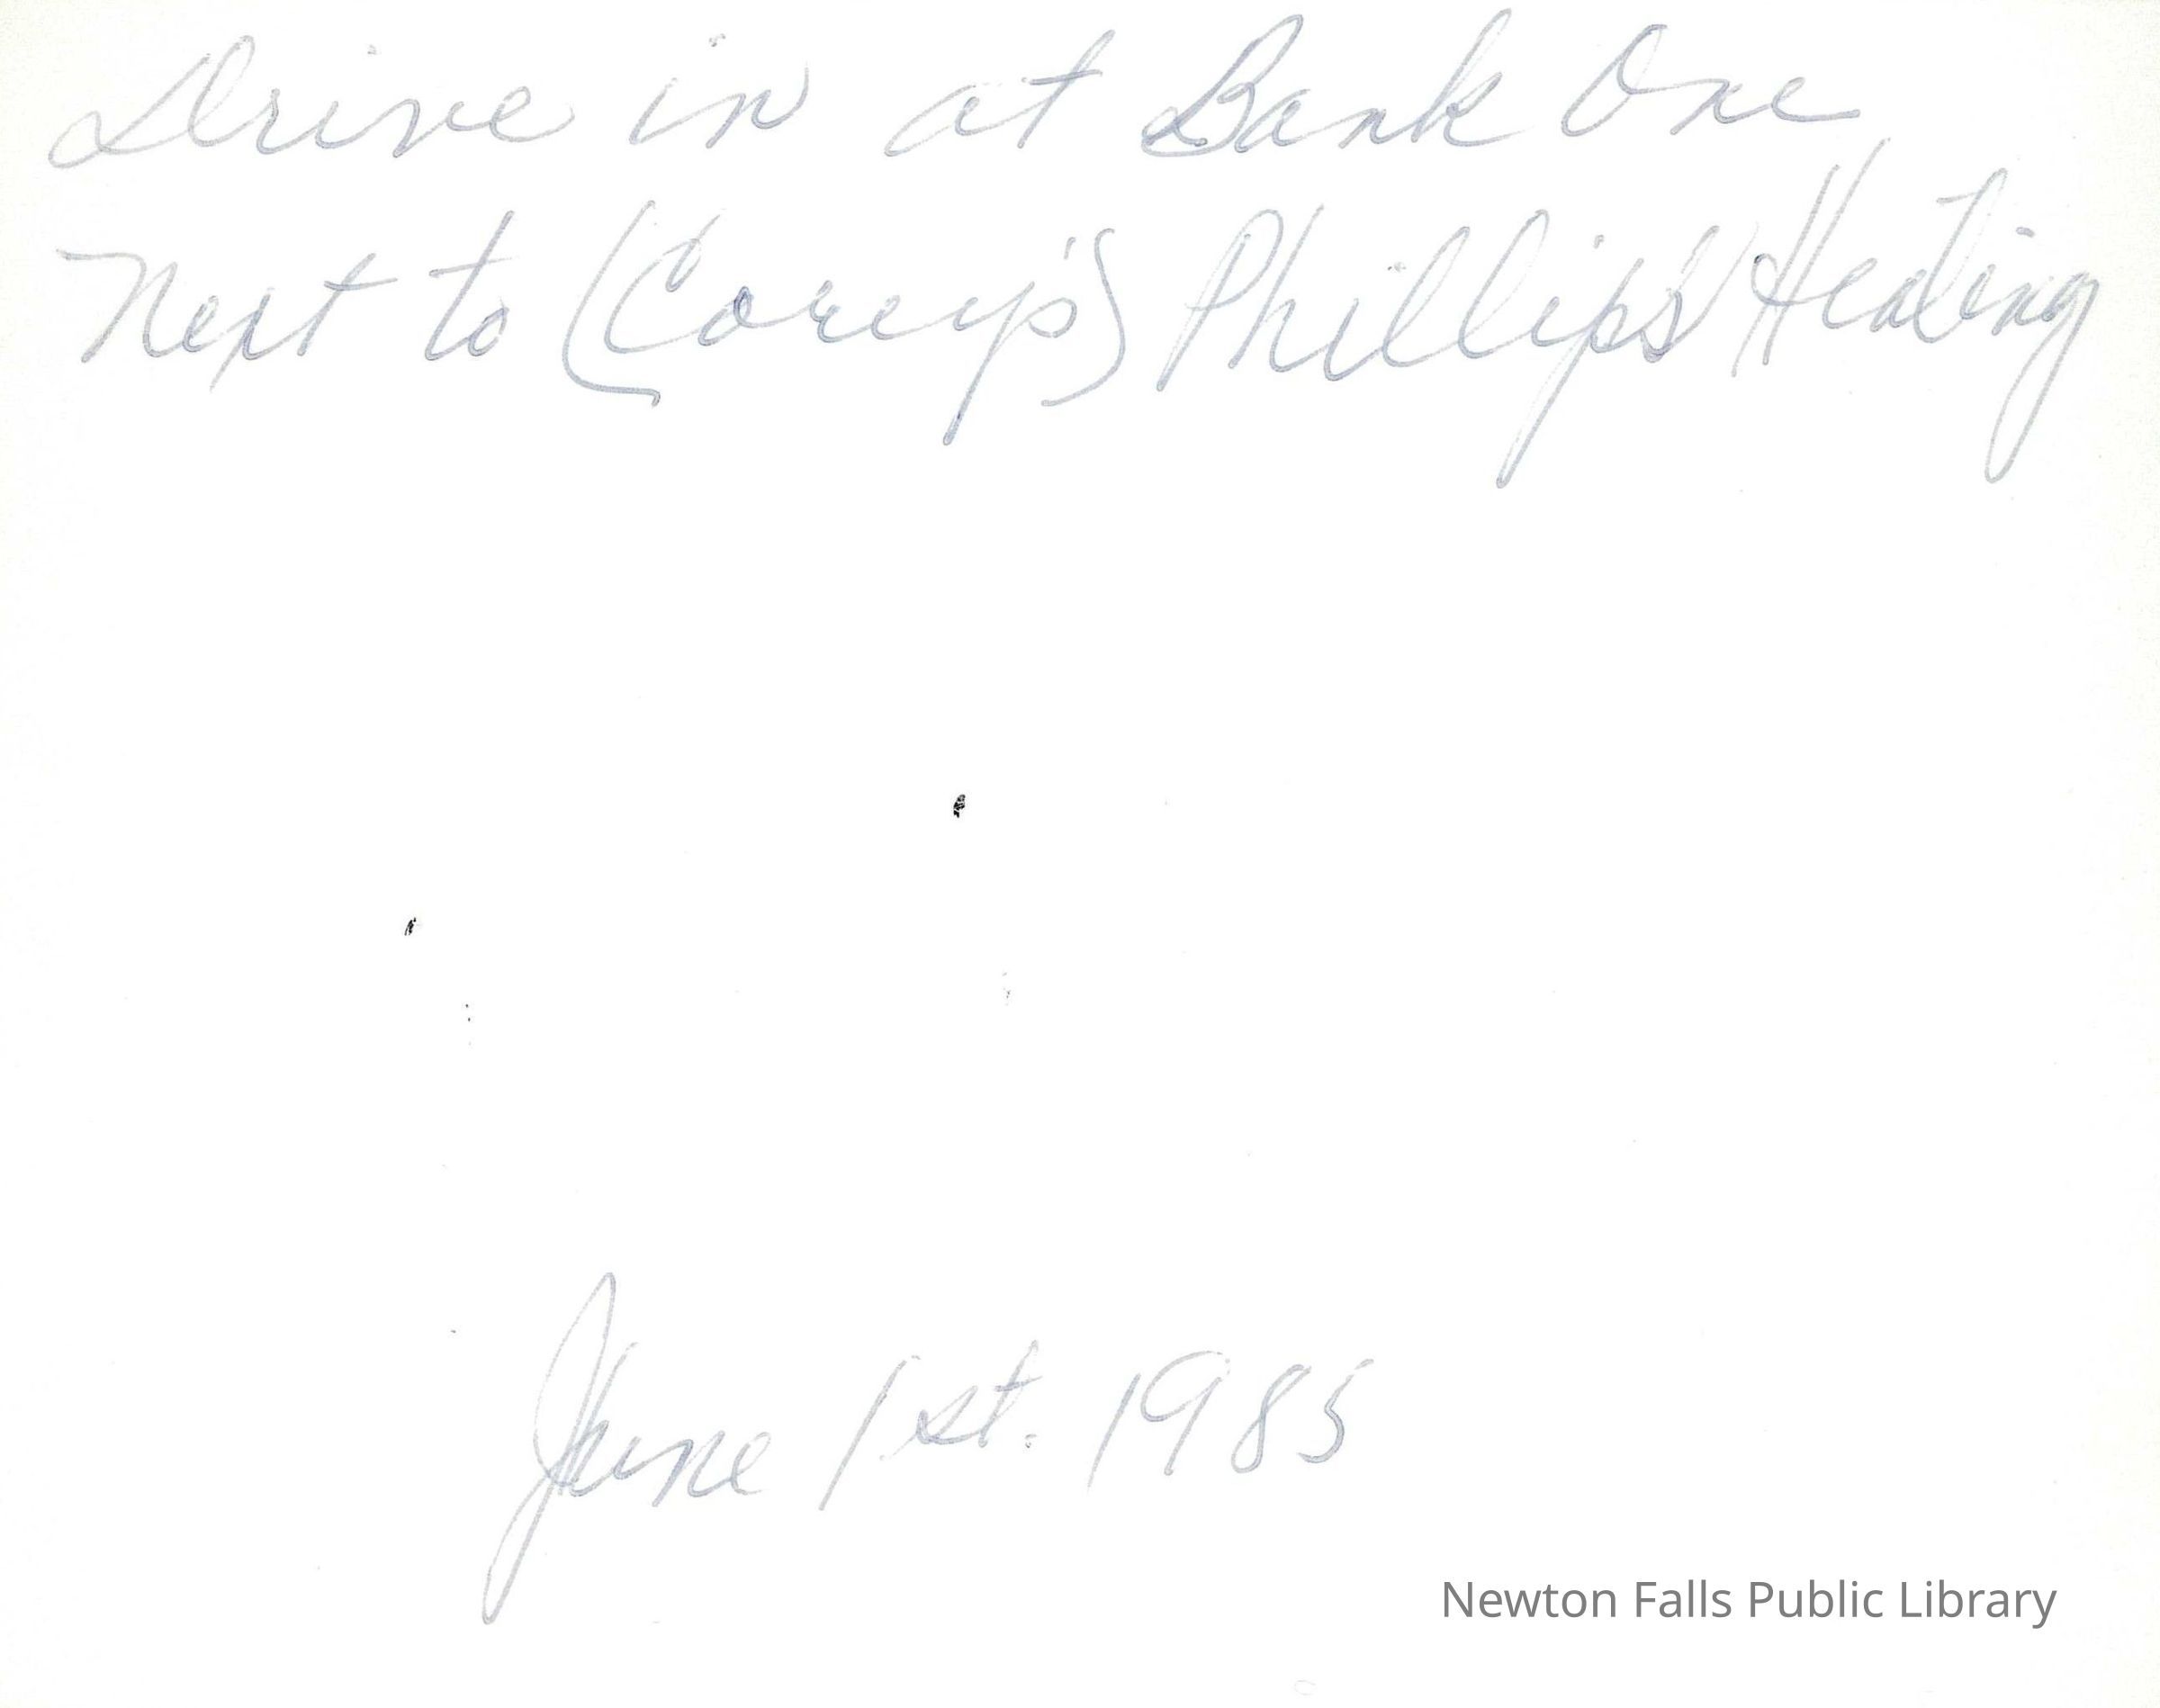 Drive in at Bank One
Next to (Corey's) Phillip's Heating
June 1st. 1985
Newton Falls Public Library